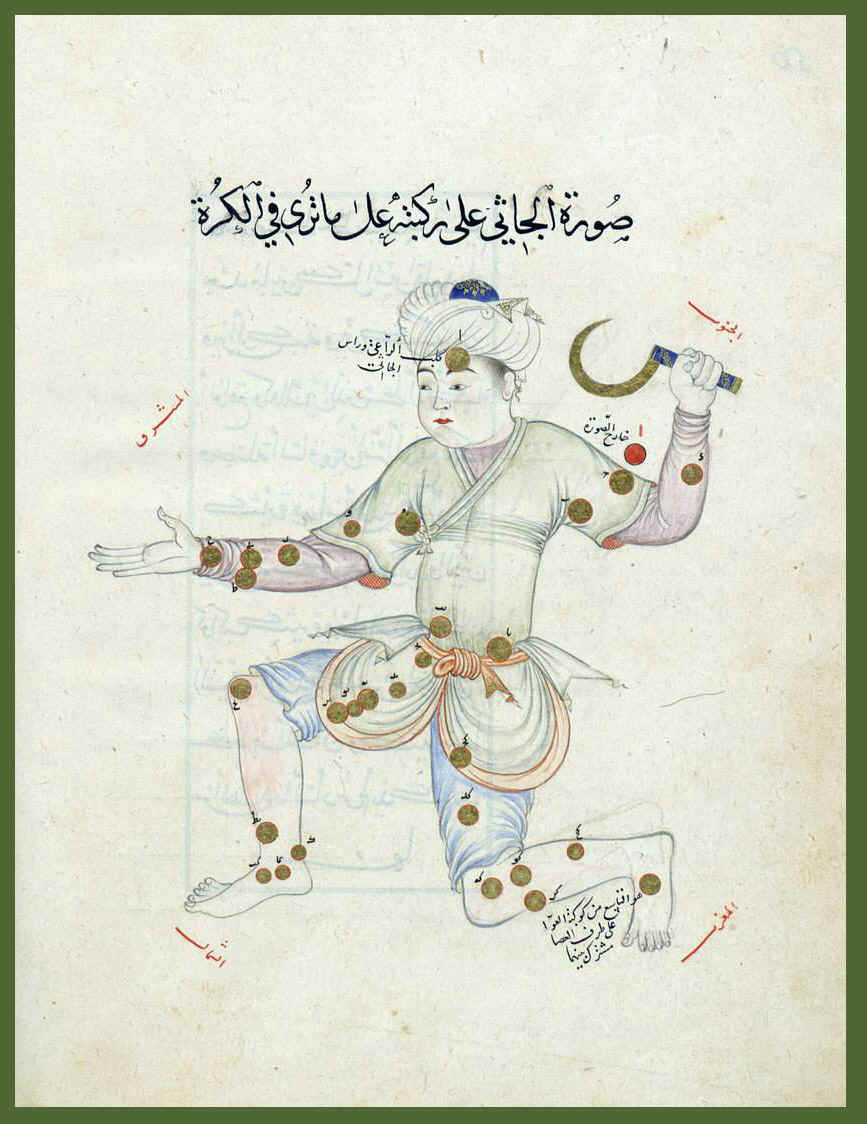 صورة الجاثي على ركبته على ما ترى في الكرة
الجنوب
كلب الراعي وراس
الجاثي
المشرق
خارج الصورة
هو التاسع من كوكبة العوا
على طرف العصا
مشترك بينهما
المغرب
الشمال